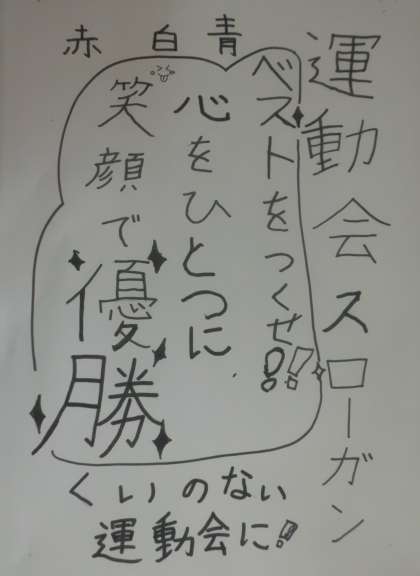 運動会スローガン
赤 白 青
ベストをつくせ!!
心をひとつに
笑顔で優勝
くいのない
運動会に!